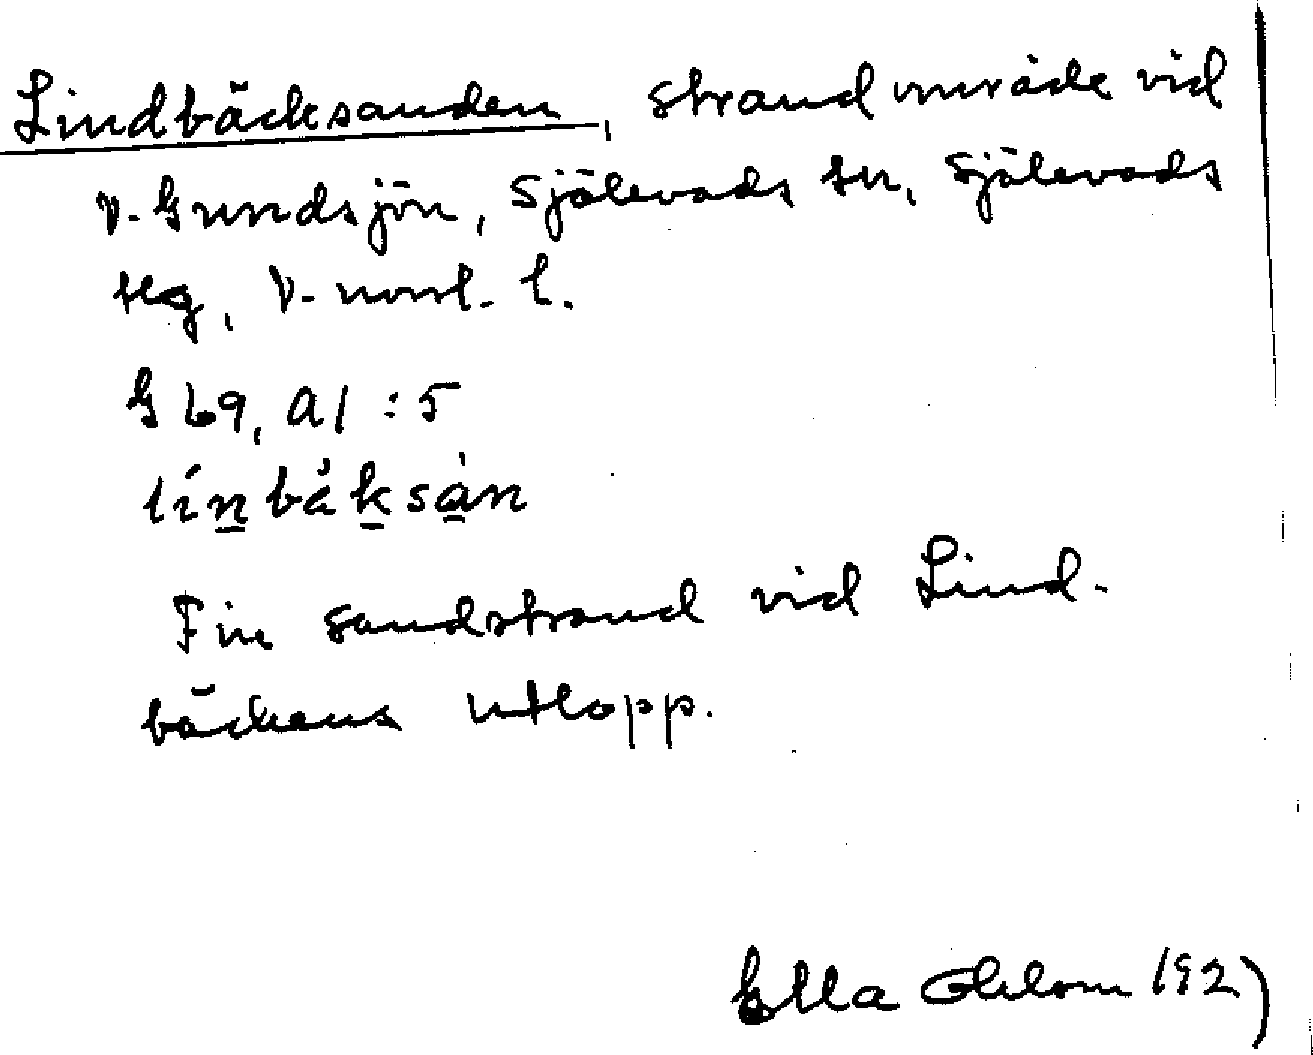 Lindbäcksanden, strandområde vid
V. Gundsjön, Själevads sn, Själevads
tlg, V-norrl. l.
G 69, a1:5
línbä́ksàn
Fin sandstrand vid Lind-
bäckens utlopp.
Ella Ohlsson 192